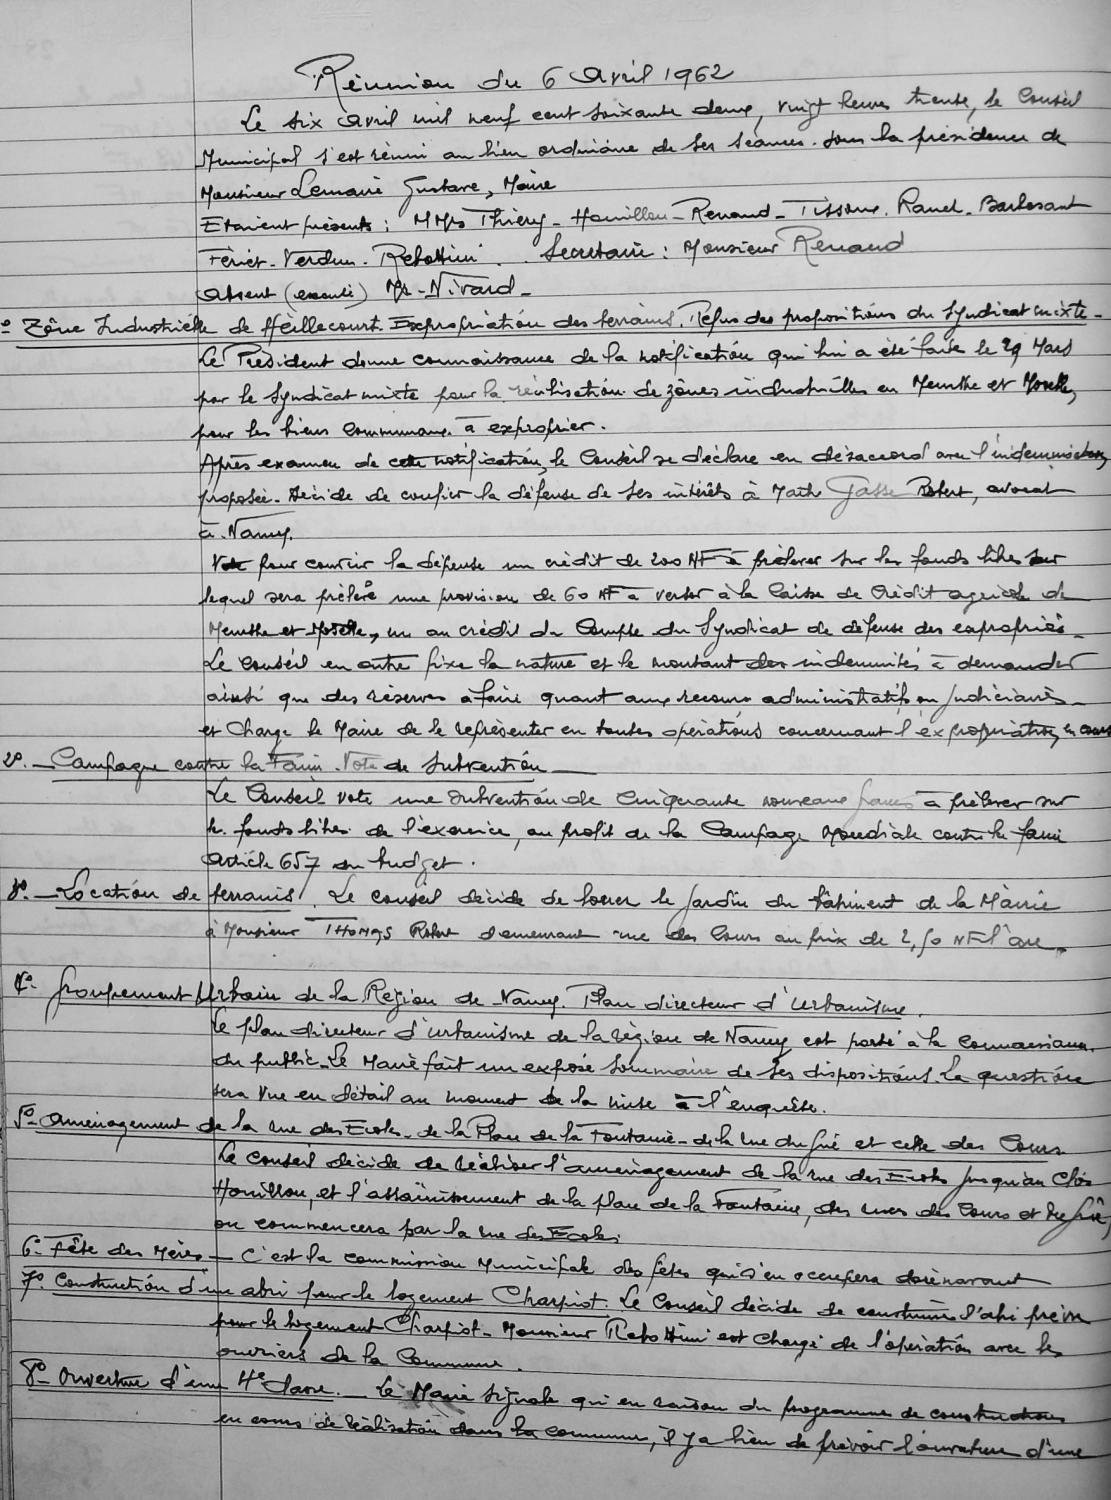 Réunion du 6 Avril 1962
Le six avril mil neuf cent soixante deux, vingt heures trente, le Conseil
Municipal s'est réuni au lieu ordinaire de ses séances. sous la présidence de
Monsieur Lemaire Gustave, Maire
Etaient présents : MMrs Thiéry - Houillon - Renaud - Tissoux. Ravel. Barbesant
Fériet. Verdun. Rebottini. Secrétaire : Monsieur Renaud
Absent (excusé) Mr - Nivard -
° Zône Industrielle de Heillecourt. Expropriation des terrains. Refus des propositions du Syndicat mixte -
Le Président donne connaissance de la notification qui lui a été faite le 29 Mars
par le Syndicat mixte pour la réalisation de zônes industrielles en Meurthe et Moselle,
pour les biens communaux à exproprier.
Après examen de cette notification, le Conseil se déclare en désaccord avec l'indemnisation
proposée. Décide de confier la défense de ses intérêts à Maitre Gasse Robert, avocat
à Nancy.
Vote pour couvrir la dépense un crédit de 200 NF à prélever sur les fonds libres sur
lequel sera prélevé une provision de 60 NF à verser à la Caisse de Crédit agricole de
Meurthe et Moselle, au crédit du Compte du Syndicat de défense des expropriés -
Le Conseil en outre fixe la nature et le montant des indemnités à demander
ainsi que des réserves à faire quant aux recours administratifs ou judiciaires -
et charge le Maire de le représenter en toutes opérations concernant l'expropriation en cours
2°. - Campagne contre la Faim. Vote de Subvention -
Le Conseil vote une subvention de cinquante nouveaux francs à prélever sur
les fonds libres de l'exercice, au profit de la Campagne Mondiale contre la faim
Article 657 du budget.
3°. - Location de terrains. Le conseil décide de louer le jardin du bâtiment de la Mairie
à Monsieur THOMAS Robert demeurant rue des Cours au prix de 2,50 NF l'are.
4°- Groupement Urbain de la Région de Nancy. Plan directeur d'Urbanisme.
Le plan directeur d'urbanisme de la région de Nancy est porté à la connaissance
du public. Le Maire fait un exposé sommaire de ses dispositions. La question
sera vue en détail au moment de la mise à l'enquête.
5°- Aménagement de la rue des Ecoles - de la Place de la Fontaine - de la rue du Gué et celle des Cours
Le Conseil décide de réaliser l'aménagement de la rue des Ecoles jusqu'au Clos
Houillon, et l'assainissement de la place de la Fontaine, des rues des Cours et du Gué,
on commencera par la rue des Ecoles.
6°- Fête des Mères - C'est la commission Municipale des fêtes qui s'en occupera dorénavant
7°. Construction d'un abri pour le logement Charpiot. Le Conseil décide de construire l'abri prévu
pour le logement Charpiot - Monsieur Rebottini est chargé de l'opération avec les
ouvriers de la Commune.
8°- Ouverture d'une 4e Classe. - Le Maire signale qu'en raison du programme de constructions
en cours de réalisation dans la commune, il y a lieu de prévoir l'ouverture d'une